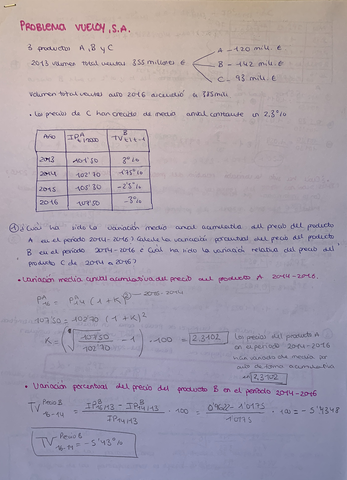 PROBLEMA VUELOY, S.A.
3 productos A, B y C
A - 120 mill. €
2013 volumen total ventas 355 millones €
B - 142 mill. €
C - 93 mill. €
Volumen total ventas año 2016 ascendió a 385 mill.
• Los precios de C han crecido de media anual constante en 2.3%
AÑO IP A TV B t, t-1
2013 101'30 3%
2014 102'70 -1'75%
2015 105'30 -2'5%
2016 107'50 -3%
① ¿Cuál ha sido la variación media anual acumulativa del precio del producto
A en el período 2014-2016? Calcula la variación porcentual del precio del producto
B en el período 2014-2016 ¿Cuál ha sido la variación relativa del precio del
producto C de 2014 a 2016?
• Variación media anual acumulativa del precio del producto A 2014-2016.
P A 16 = P A 14 (1+K) 2016-2014
107'50 = 102'70 (1+K)²
K = (√ 107'50 / 102'70 - 1) · 100 = 2.3102
Los precios del producto A
en el periodo 2014-2016
han variado de media por
año de forma acumulativa
en 2,3102
• Variación porcentual del precio del producto B en el período 2014-2016
TV Precio B 16-14 = IP B 16/13 - IP B 14/13 / IP 14/13 · 100 = - 1'0175 / 1'0175 · 100 = -5'4348
TV Precio B 16-14 = -5'43%